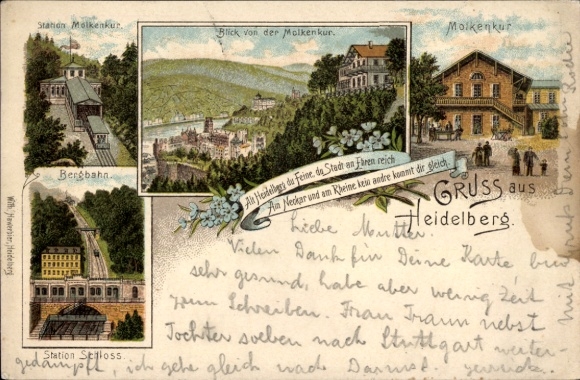 Station Molkenkur.
Blick von der Molkenkur.
Molkenkur
Bergbahn.
Alt Heidelberg du Feine, du Stadt an Ehren reich
Am Neckar und am Rheine kein andre kommt dir gleich.
GRUSS aus
Heidelberg.
Station Schloss.
Liebe Mutter.
Vielen Dank für Deine Karte bin
sehr gesund, habe aber wenig Zeit
zum Schreiben. Frau Traum nebst
Tochter soeben nach Stuttgart weiter-
gedampft, ich gehe gleich nach Darmst. zurück.